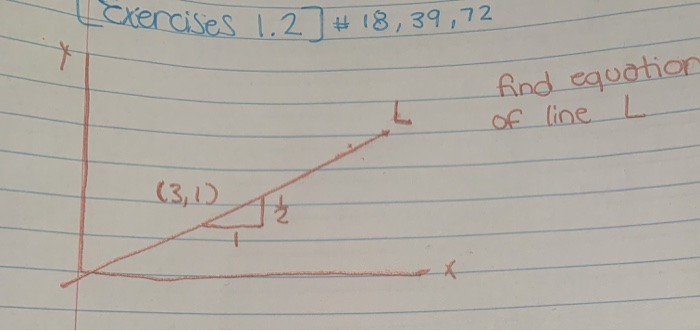 [Exercises 1.2] # 18, 39, 72
Y
find equation
of line L
L
(3,1)
1/2
1
X